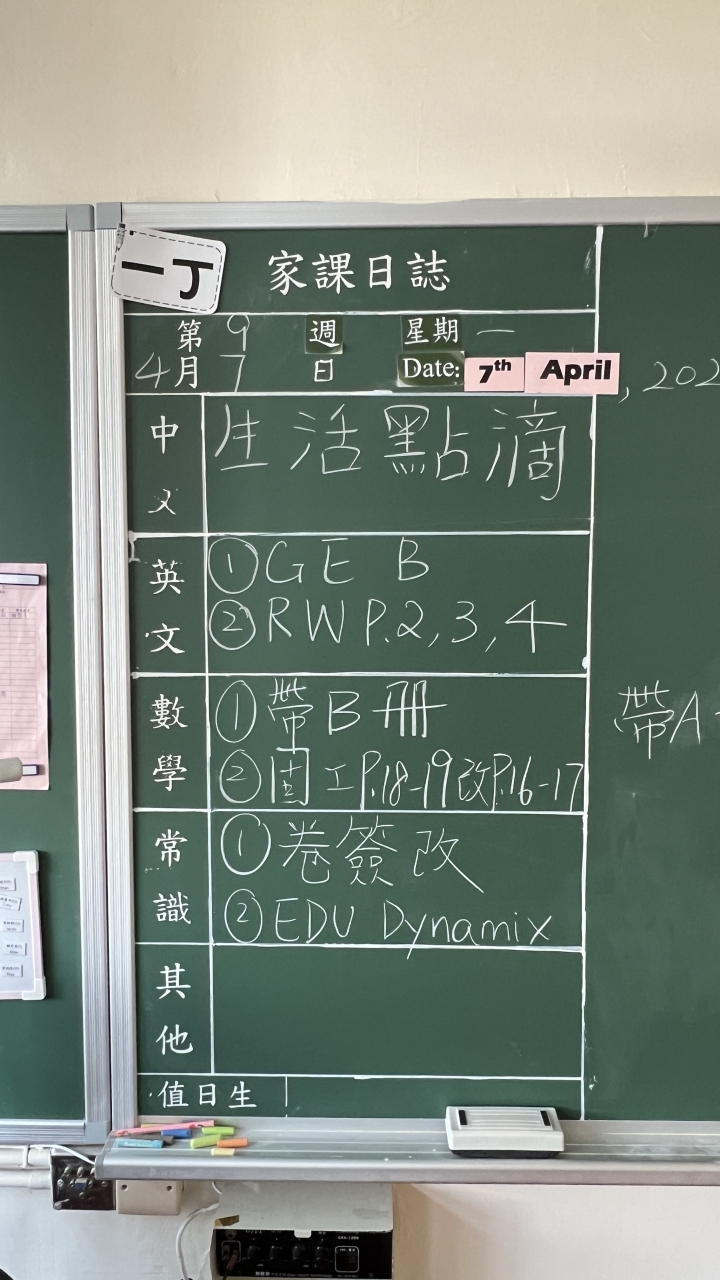 一丁
家課日誌
第9週 星期一
4月7日 Date: 7th April, 202
中文
生活點滴
英文
①GE B
②RW P.2,3,4
數學
①帶B冊
②固工P.18-19改P.16-17
帶A
常識
①卷簽改
②EDU Dynamix
其他
值日生